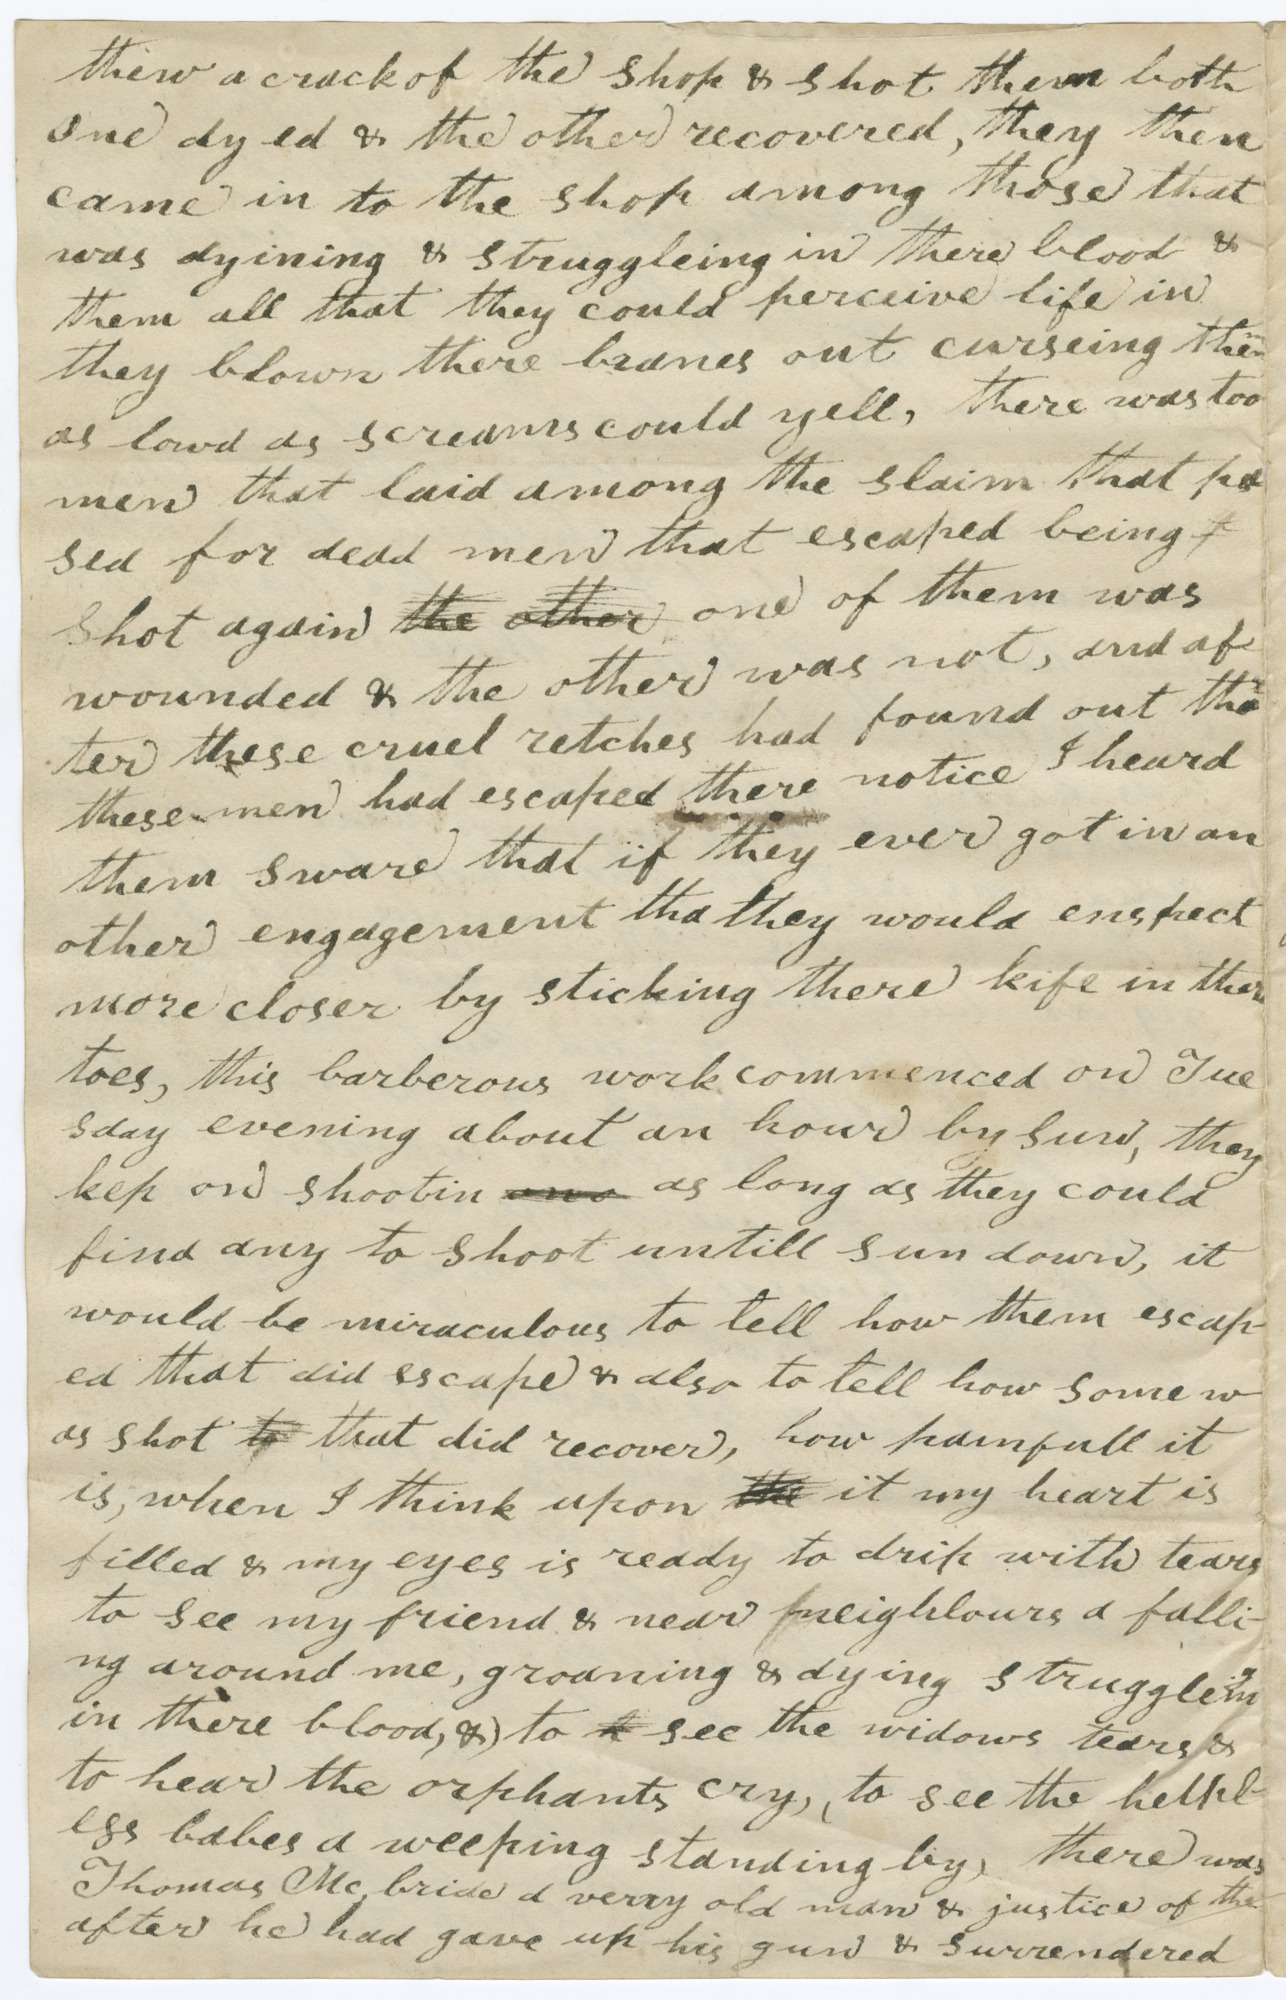 thew a crack of the shop & shot them both
one dyed & the other recovered, they then
came in to the shop among those that
was dyining & struggleing in there blood &
them all that they could perceive life in
they blown there branes out curseing them
as lowd as screams could yell, there was too
men that laid among the slaim that pa
sed for dead men that escaped being
shot again the other one of them was
wounded & the other was not, and af
ter these cruel retches had found out that
these men had escaped there notice I heard
them sware that if they ever got in an
other engagement tha they would enspect
more closer by sticking there kife in there
toes, this barberous work commenced on Tue
sday evening about an hour by sun, they
kep on shootin as long as they could
find any to shoot untill sun down, it
would be miraculous to tell how them escap-
ed that did escape & also to tell how some w
as shot to that did recover, how painfull it
is, when I think upon the it my heart is
filled & my eyes is ready to drip with tears
to see my friend & near neighbours a falli-
ng around me, groaning & dying struggleing
in there blood, & to see the widows tears &
to hear the orphants cry, to see the helpl-
ess babes a weeping standing by, there was
Thomas Mcbride a verry old man & justice of the
after he had gave up his gun & surrendered